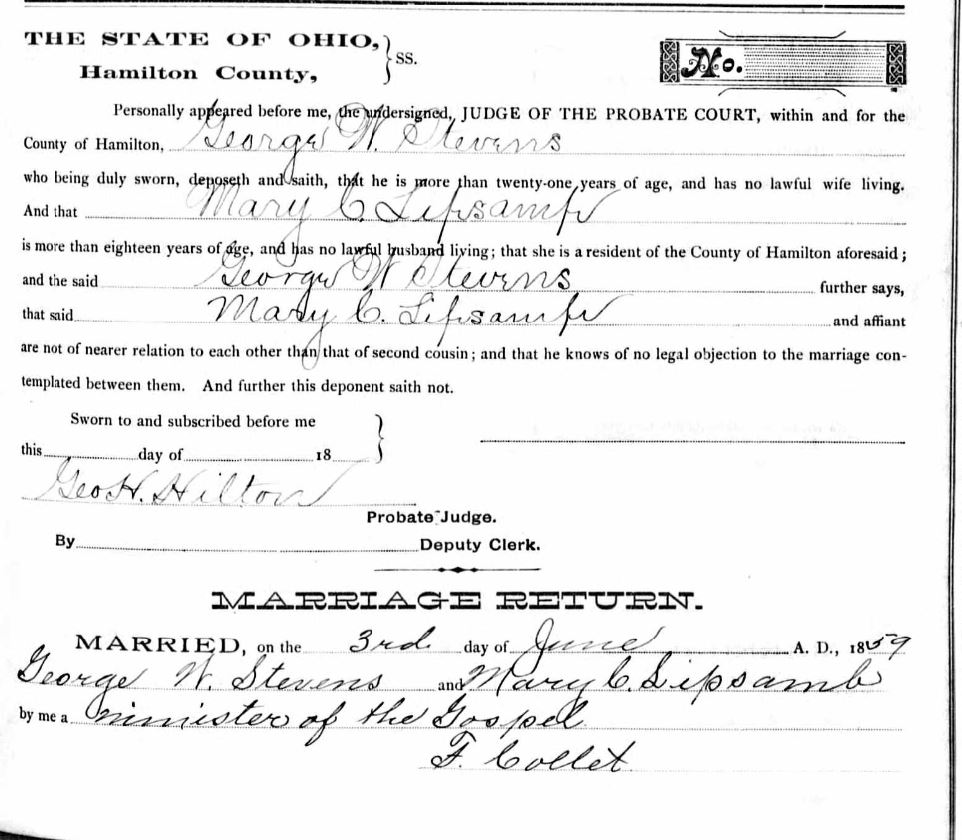 THE STATE OF OHIO,
Hamilton County, } SS.
No.
Personally appeared before me, the undersigned, JUDGE OF THE PROBATE COURT, within and for the
County of Hamilton, George W. Stevens
who being duly sworn, deposeth and saith, that he is more than twenty-one years of age, and has no lawful wife living.
And that Mary C. Lipsamb
is more than eighteen years of age, and has no lawful husband living; that she is a resident of the County of Hamilton aforesaid;
and the said George W Stevens further says,
that said Mary C. Lipsamb and affiant
are not of nearer relation to each other than that of second cousin; and that he knows of no legal objection to the marriage con-
templated between them. And further this deponent saith not.
Sworn to and subscribed before me
this day of 18 }
Geo H. Hilton
Probate Judge.
By Deputy Clerk.
MARRIAGE RETURN.
MARRIED, on the 3rd. day of June A. D., 1859
George W. Stevens and Mary C. Lipsamb
by me a minister of the Gospel
F. Collet